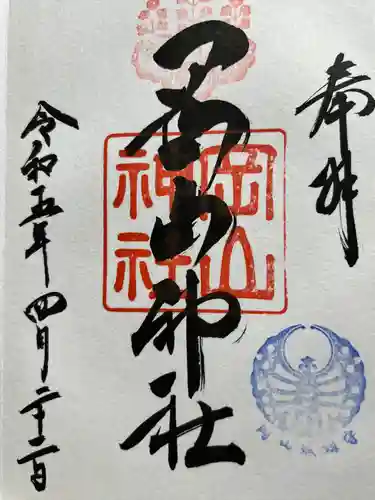 奉拝
岡山神社
岡山
神社
令和五年四月二十二日